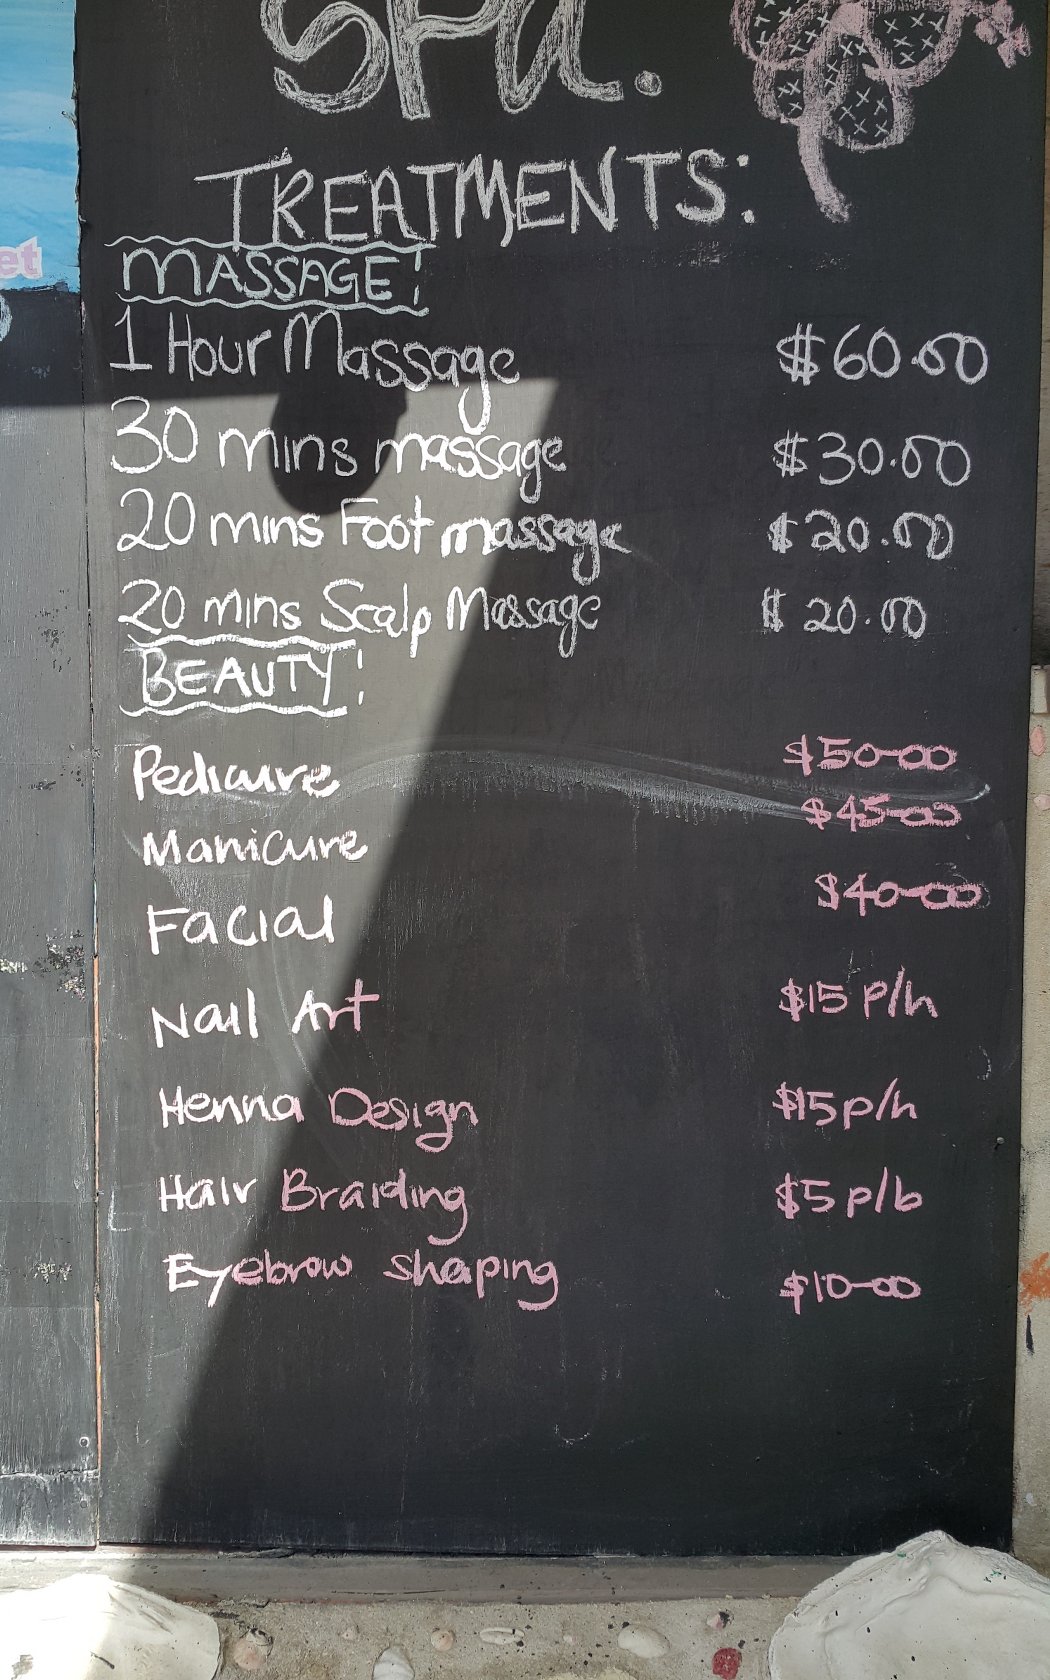 et
SPA.
TREATMENTS:
MASSAGE!
1 Hour Massage $60.00
30 mins massage $30.00
20 mins Foot massage $20.00
20 mins Scalp Massage $20.00
BEAUTY!
Pedicure $50-00
Manicure $45-00
Facial $40-00
Nail Art $15 p/h
Henna Design $15 p/h
Hair Braiding $5 p/b
Eyebrow shaping $10-00